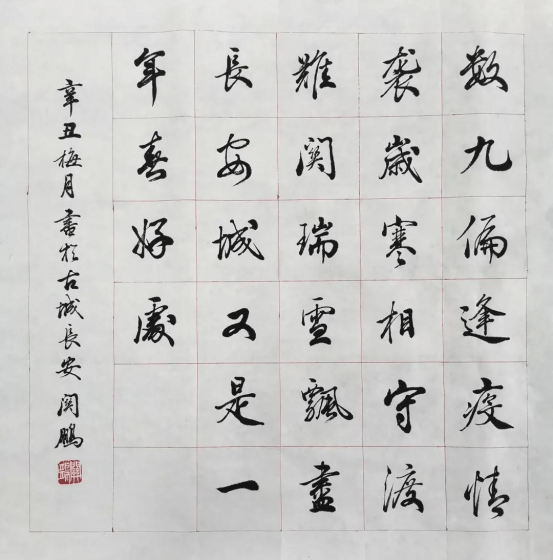 数九偏逢疫情
袭岁寒相守渡
難関瑞雪飄盡
長安城又是一
年春好處
辛丑梅月書於古城長安関鵬